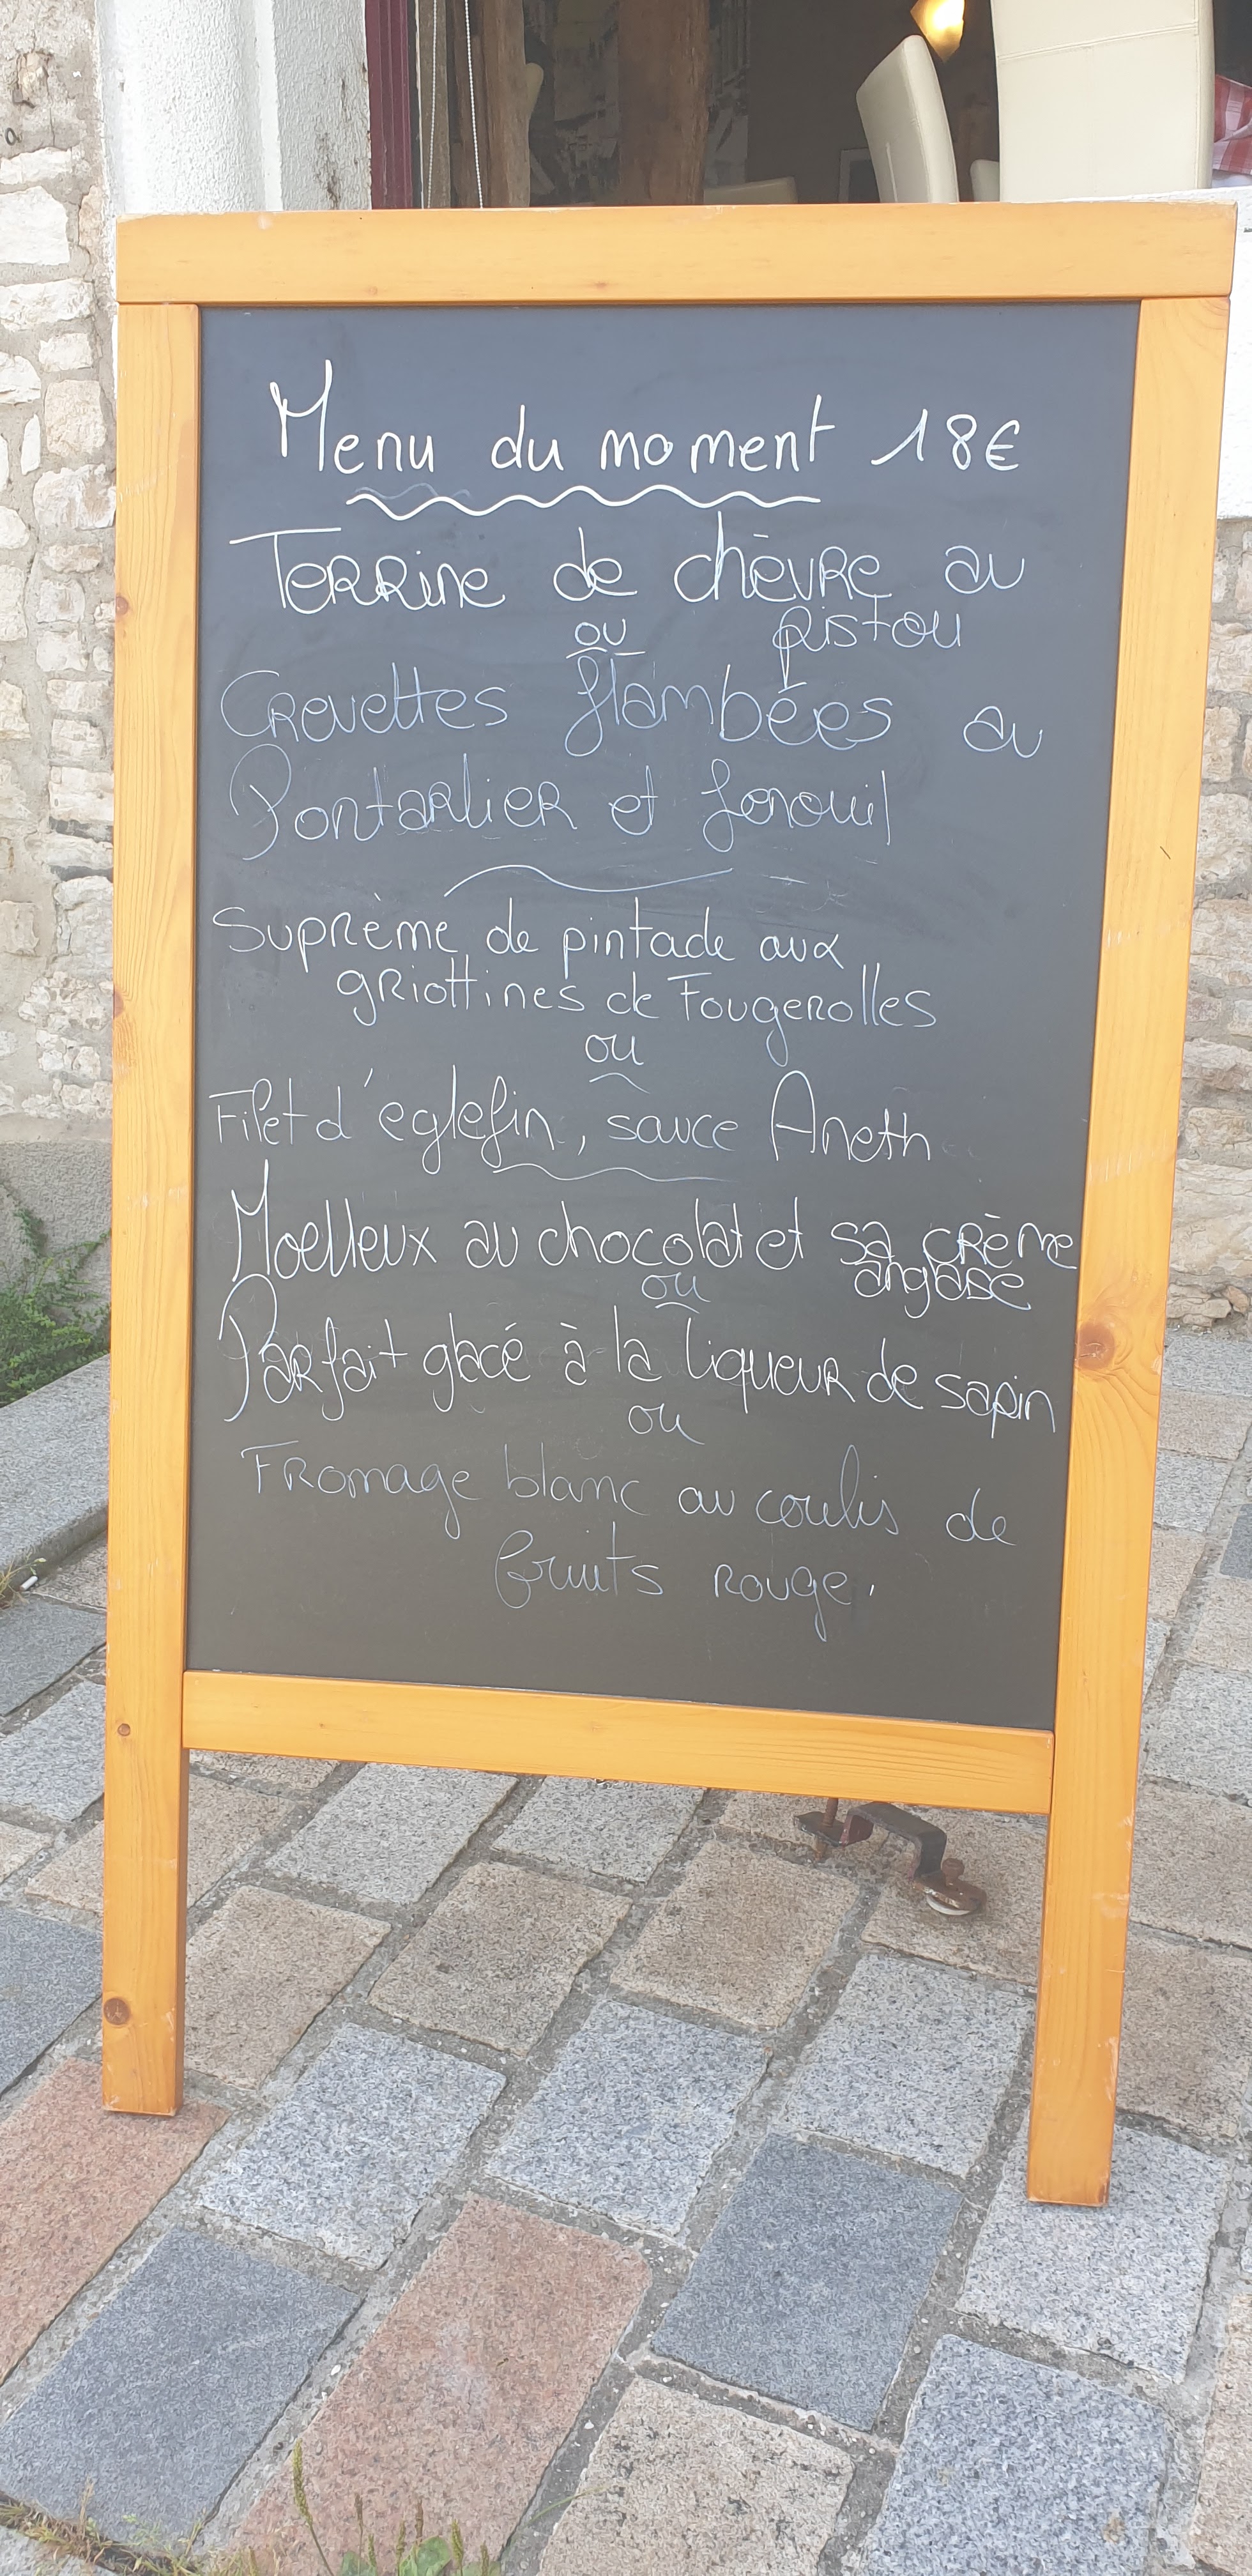 Menu du moment 18€
Terrine de chèvre au
pistou
ou
Crevettes flambées au
Pontarlier et fenouil
Suprème de pintade aux
griottines de Fougerolles
ou
Filet d'églefin, sauce Aneth
Moelleux au chocolat et sa crème
anglaise
ou
Parfait glacé à la liqueur de sapin
ou
Fromage blanc au coulis de
fruits rouge.